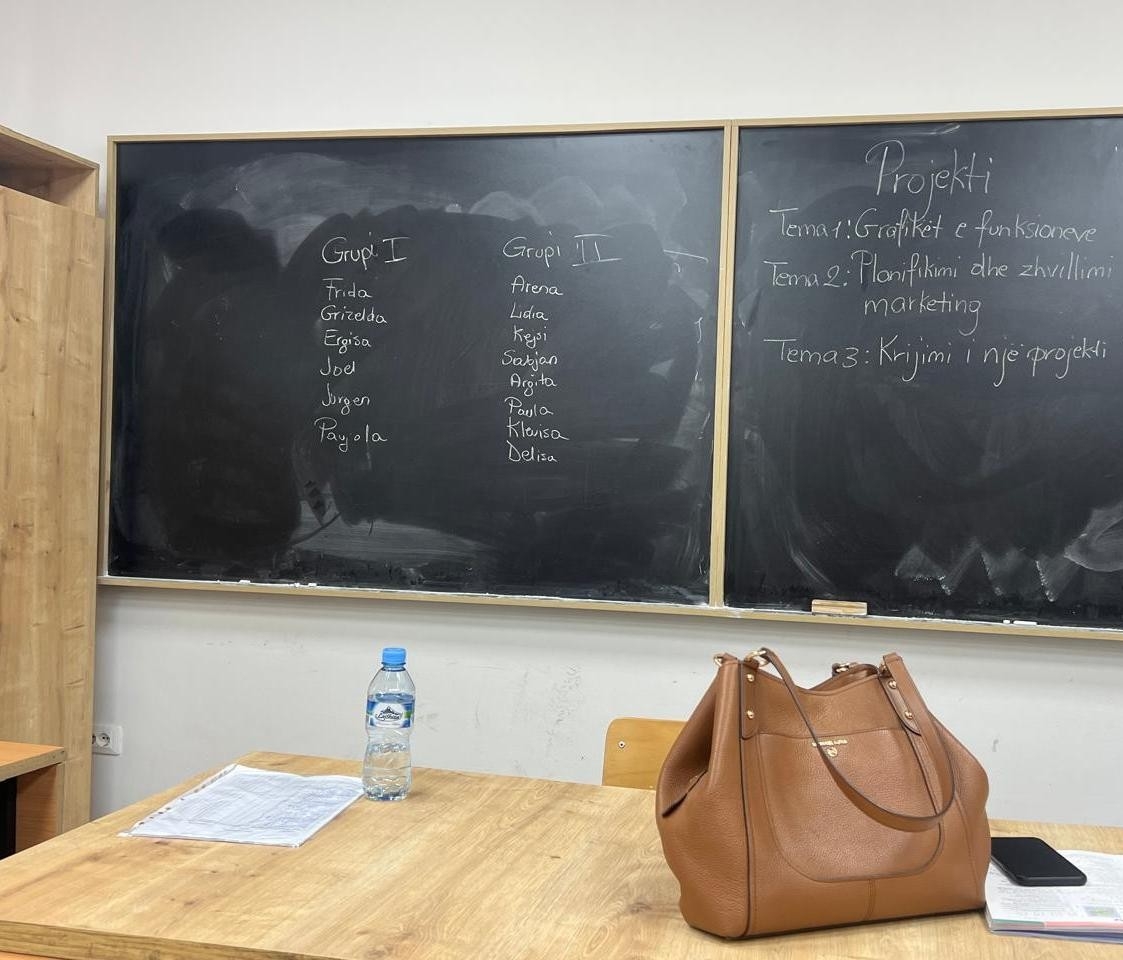 Grupi I
Frida
Grizelda
Ergisa
Joel
Jurgen
Payola
Grupi II
Arena
Lidia
Kejsi
Sabjan
Argita
Paula
Klavisa
Delisa
Projekti
Tema 1: Grafikët e funksioneve
Tema 2: Planifikimi dhe zhvillimi
marketing
Tema 3: Krijimi i një projekti
MICHAEL KORS